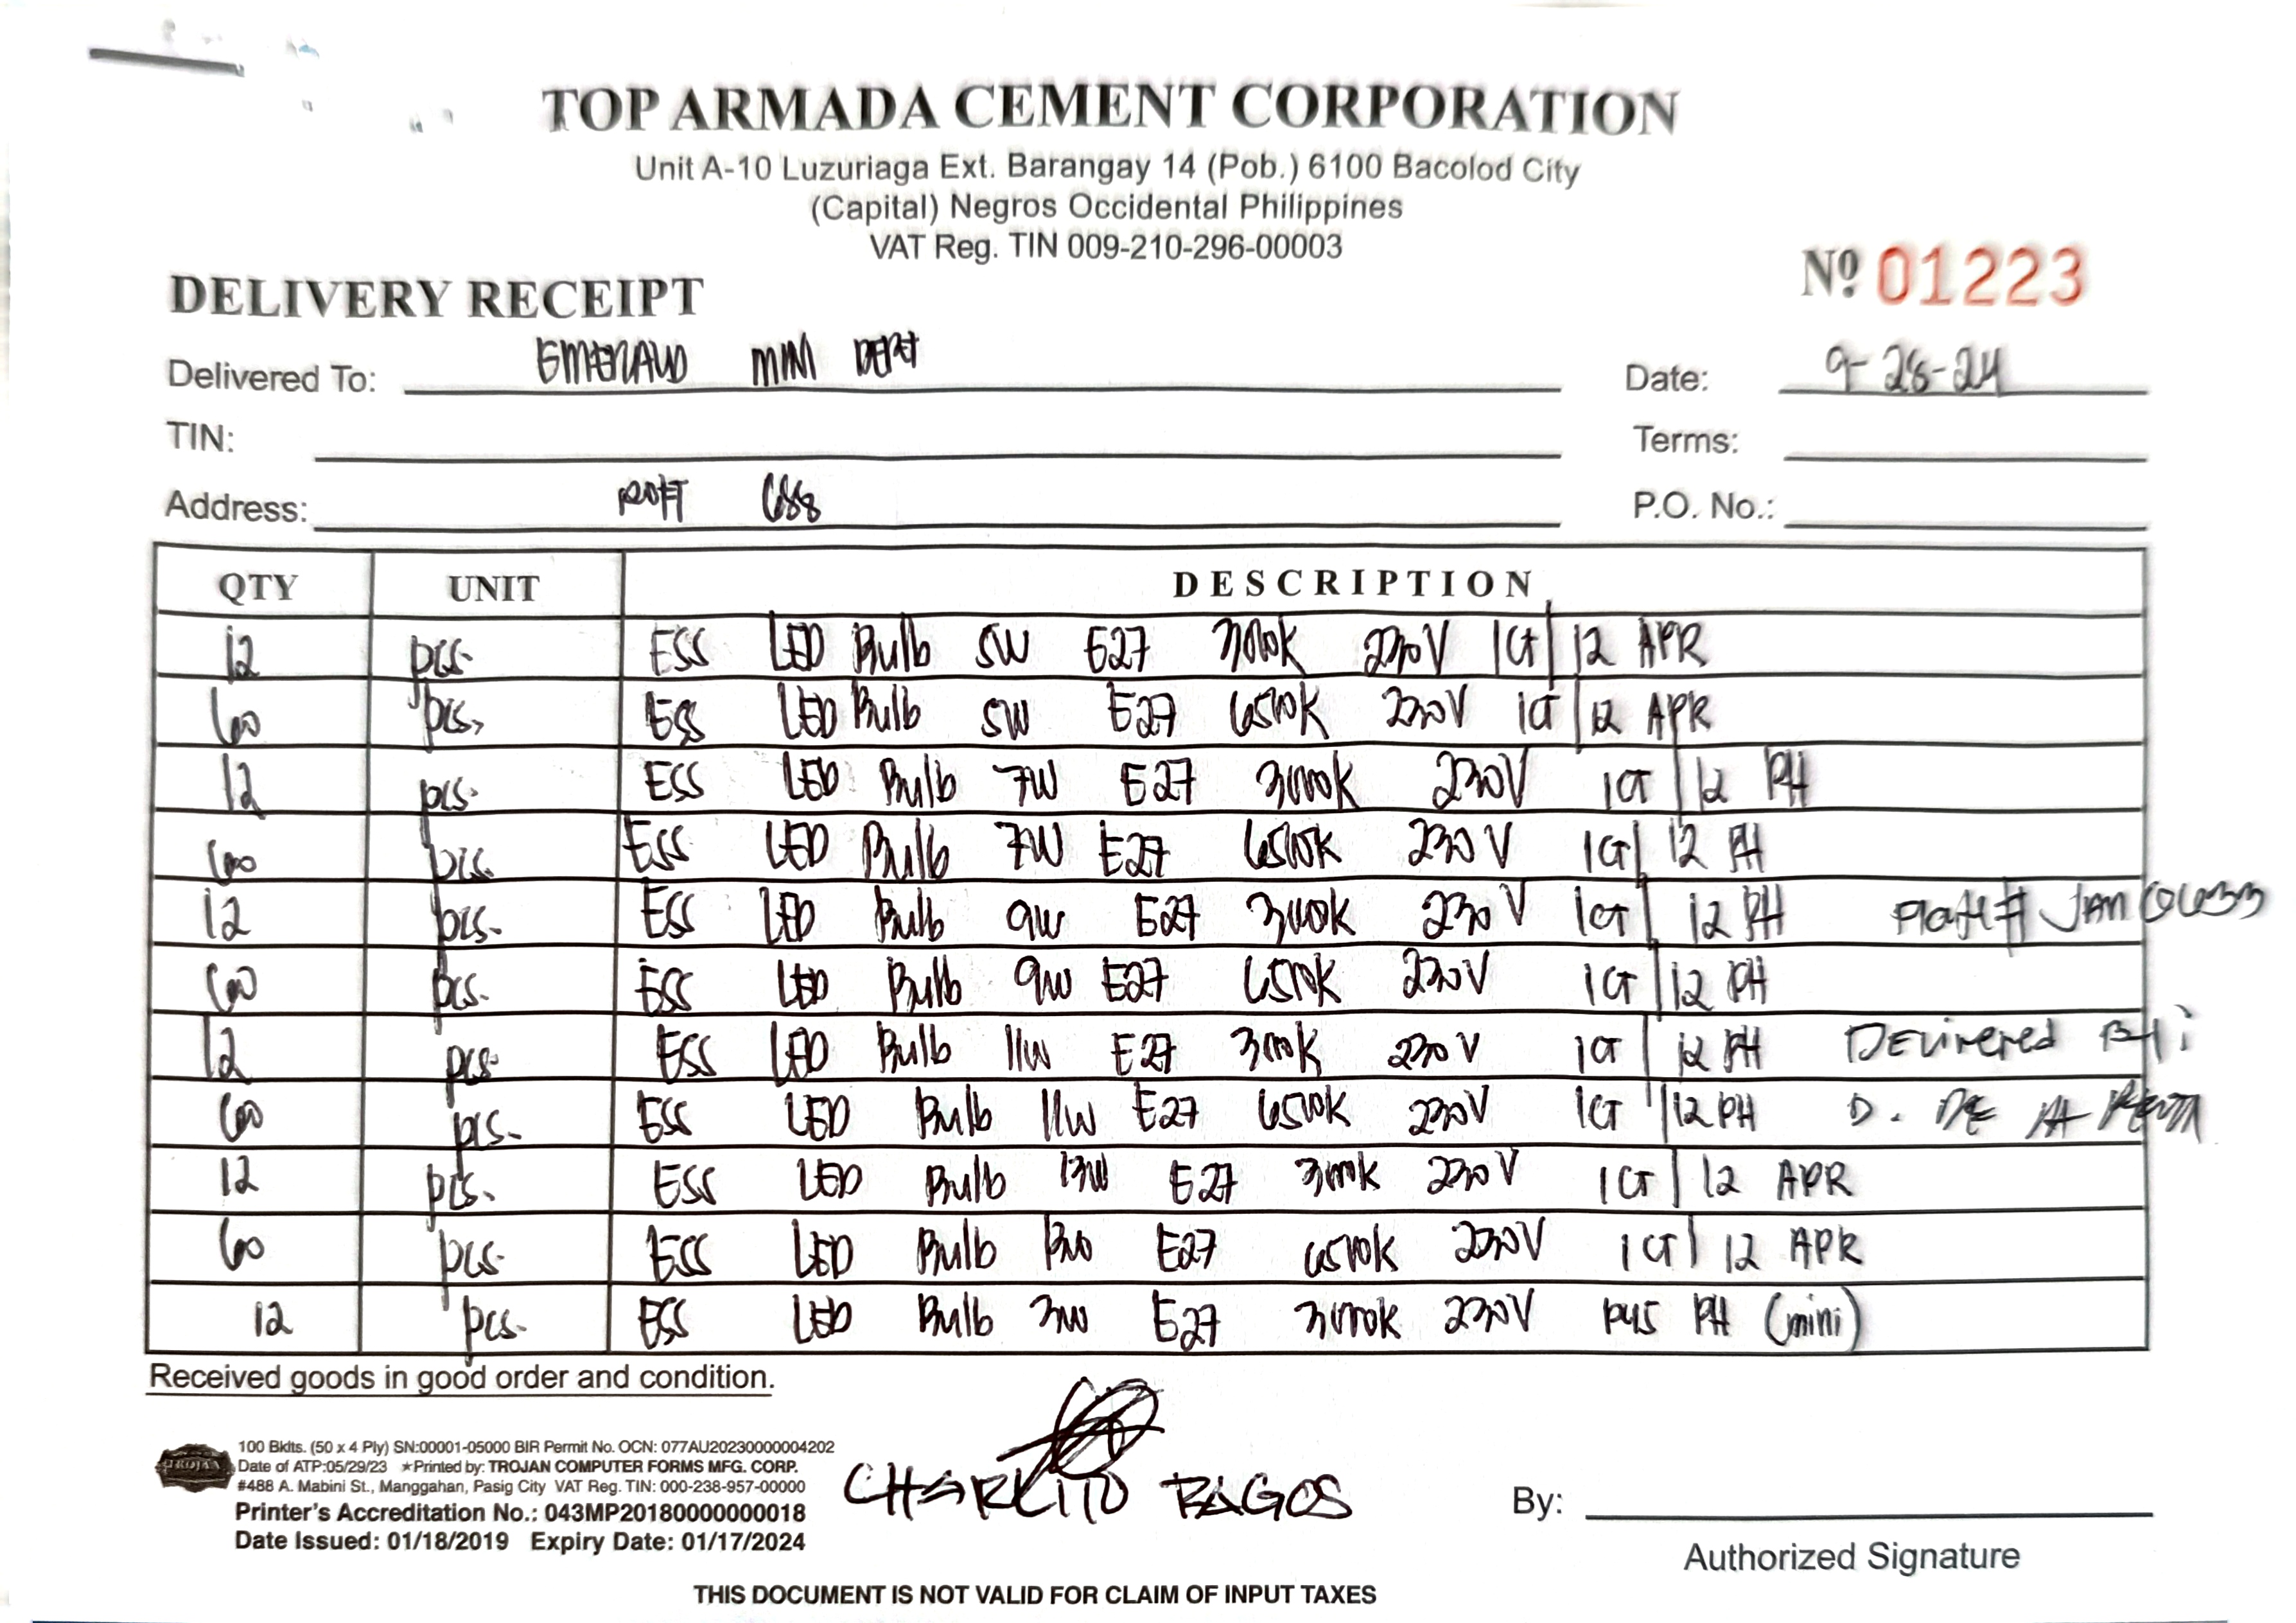 TOP ARMADA CEMENT CORPORATION
Unit A-10 Luzuriaga Ext. Barangay 14 (Pob.) 6100 Bacolod City
(Capital) Negros Occidental Philippines
VAT Reg. TIN 009-210-296-00003
DELIVERY RECEIPT Nº 01223
Delivered To: EMERALD MINI DEPT Date: 9-28-24
TIN: Terms:
Address: P.O. No.:
QTY UNIT DESCRIPTION
12 pcs. ESS LED Bulb 5W E27 3000K 230V 1CT/12 APR
60 pcs. ESS LED Bulb 5W E27 6500K 230V 1CT/12 APR
12 pcs. ESS LED Bulb 7W E27 3000K 230V 1CT/12 PH
60 pcs. ESS LED Bulb 7W E27 6500K 230V 1CT/12 PH
12 pcs. ESS LED Bulb 9W E27 3000K 230V 1CT/12 PH Plate#
60 pcs. ESS LED Bulb 9W E27 6500K 230V 1CT/12 PH
12 pcs. ESS LED Bulb 11W E27 3000K 230V 1CT/12 PH Delivered BY:
60 pcs. ESS LED Bulb 11W E27 6500K 230V 1CT/12 PH D. DE
12 pcs. ESS LED Bulb 13W E27 3000K 230V 1CT/12 APR
60 pcs. ESS LED Bulb 13W E27 6500K 230V 1CT/12 APR
12 pcs. ESS LED Bulb 3W E27 3000K 230V P45 PH (mini)
Received goods in good order and condition.
100 Bklts. (50 x 4 Ply) SN:00001-05000 BIR Permit No. OCN: 077AU20230000004202
TROJAN Date of ATP:05/29/23 ★Printed by: TROJAN COMPUTER FORMS MFG. CORP.
#488 A. Mabini St., Manggahan, Pasig City VAT Reg. TIN: 000-238-957-00000
Printer's Accreditation No.: 043MP20180000000018
Date Issued: 01/18/2019 Expiry Date: 01/17/2024
CHARLITO RAGOS
By:
Authorized Signature
THIS DOCUMENT IS NOT VALID FOR CLAIM OF INPUT TAXES